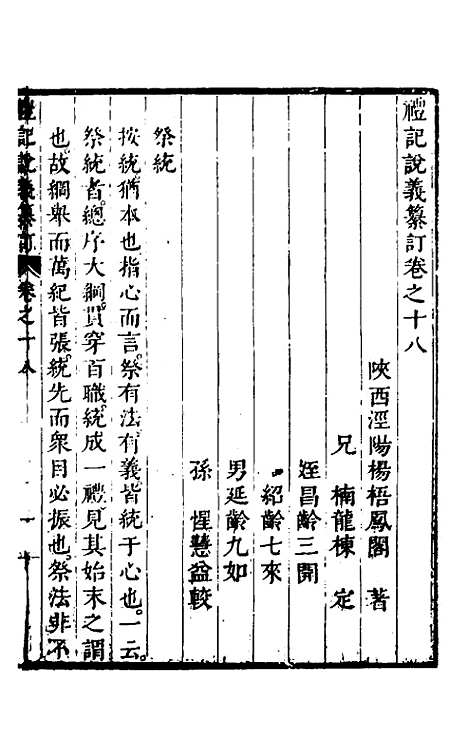 禮記說義纂訂卷之十八
陝西涇陽楊梧鳳閣 著
兄 楠龍棟 定
姪昌齡三開
紹齡七來
男延齡九如
孫 惺慧益較
祭統
按統猶本也指心而言祭有法有義皆統于心也一云
祭統者總序大綱貫穿百職統成一禮見其始末之謂
也故綱舉而萬紀皆張統先而衆目必振也祭法非不
禮記說義纂訂 卷之十八 一